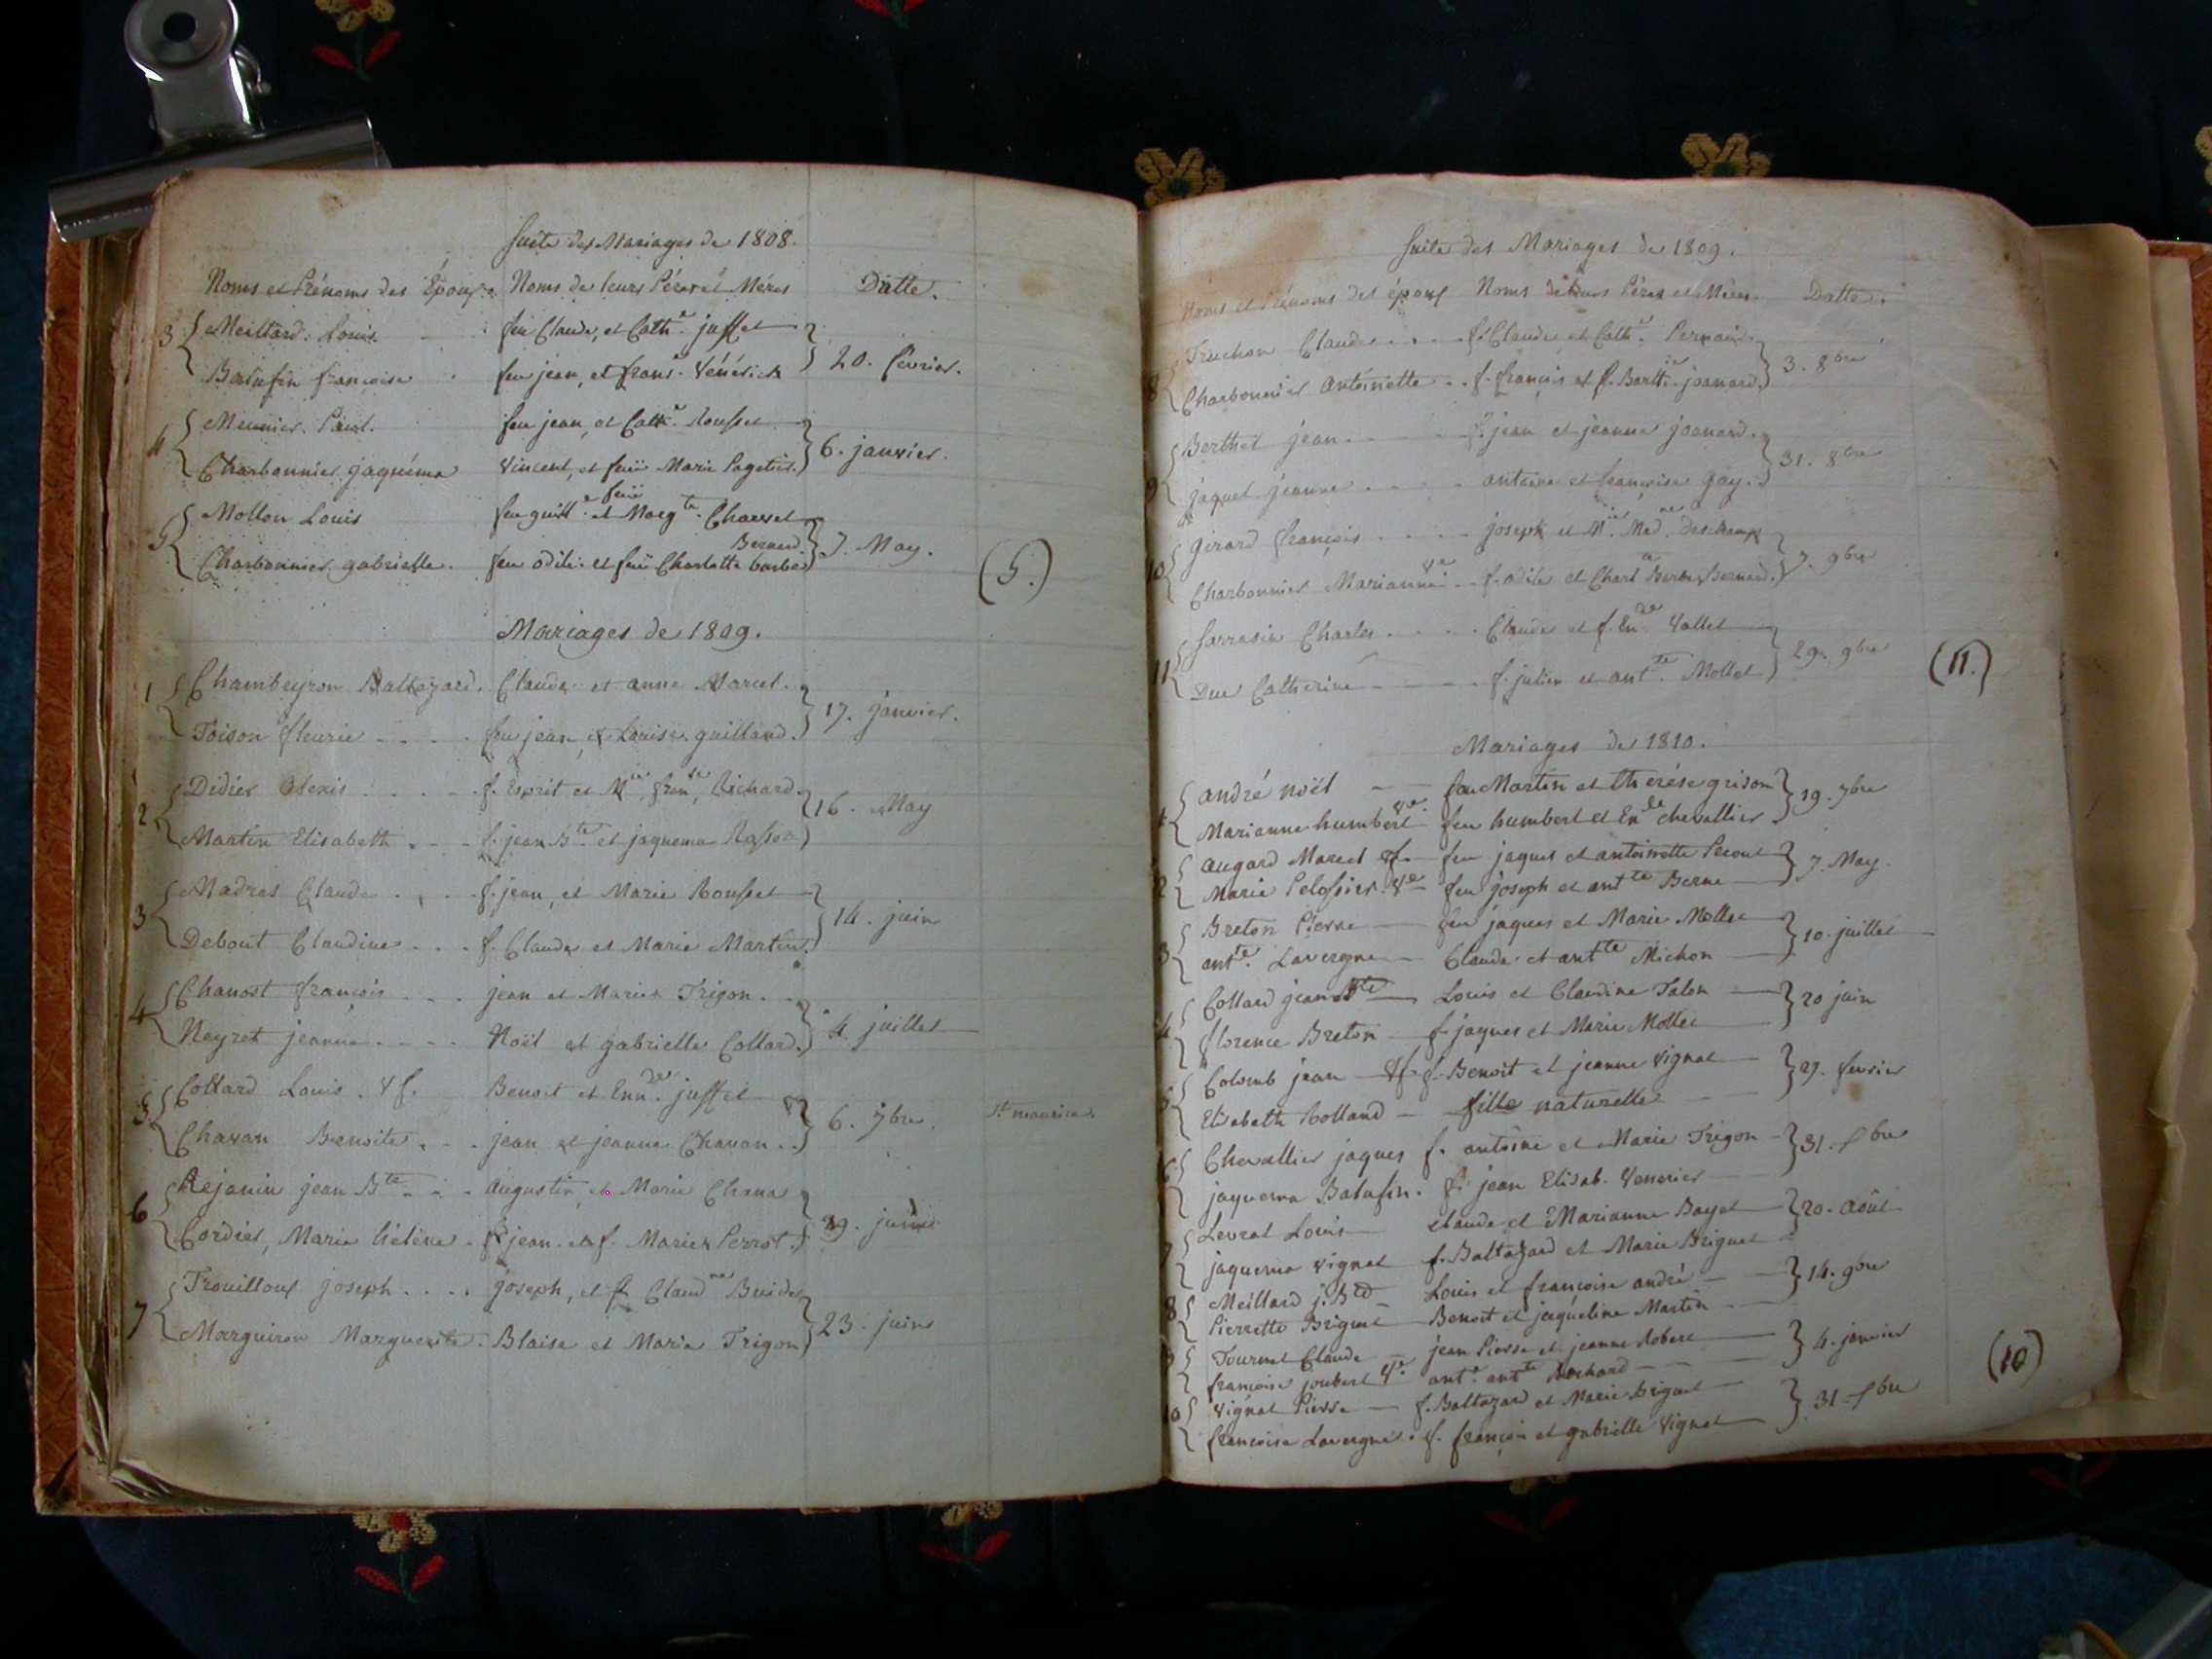 Suite des Mariages de 1808.
Noms et Prénoms des Époux. Noms de leurs Péres et Méres Datte.
3 Meillard Louis. feu Claude, et Cathe. juffet
Balufin françoise feu jean, et frans. Vénérick 20. février.
4 Meunier. Paul. feu jean, et Cathe. Rousset
Charbonnier jaquéma Vincent, et feüe Marie Pagetier. 6. janvier.
5 Mollon Louis feu guille. et feüe Margte. Charvet
Charbonnier gabrielle. feu odile. et feüe Charlotte barbe Bernard 3. May.
(5.)
Mariages de 1809.
1 Chambeyron Baltazard. Claude et anne Marcel.
Toison fleurie feu jean, et Louise guilland. 17. janvier.
2 Didier Alexis f. Esprit et Mie fren.se Richard.
Martin Elisabeth f. jean Bte. et jaquema 16. May
3 Madras Claude f. jean, et Marie Rousset
Debout Claudine f. Claude et Marie Martin. 14. juin
4 Chanost françois jean et Marie Trigon.
Neyret jeanne Noël et gabrielle Collard. 4. juillet
5 Collard Louis. Vf. Benoit et Enn.de juffet
Chavan Benoite. jean et jeanne Chavan. 6. 7bre. St. maurice
6 Réjanin jean Bte. augustin, et Marie Chana
Cordier, Marie hélène. f. jean. et f. Marie Perrot. 29.
7 Trouilloux joseph joseph, et f. Claudne
Marguiron Marguerite. Blaise et Marie Trigon 23. juin
Suite des Mariages de 1809.
Noms et Prénoms des époux Noms de leurs Péres et Méres. Datte.
8 Truchon Claude f. Claude et Cathe. Pernaud.
Charbonnier Antoinette f. françois et f. Barthie. joanard. 3. 8bre
9 Berthet jean f. jean et jeanne joanard.
jaquet jeanne antoine et françoise gay. 31. 8bre
10 Girard françois joseph et Mie. Madne. Deschamps
Charbonnier Marianne ve. f. odile et Charlte Barbe Bernard. 7. 9bre
11 Sarrasin Charles Claude et f. En.de Vallet
Duc Catherine f. julien et antte. Mollet 29. 9bre
(11.)
Mariages de 1810.
1 andré noël feu Martin et thérése grison
Marianne humbert ve. feu humbert et Ende chevallier 19. 7bre
2 augard Marcel Vf. feu jaques et antoinette
Marie Pelossier. Ve feu joseph et antte Berne 7. May.
3 Breton Pierre feu jaques et Marie Mollet
antte. Lavergne Claude et antte Michon 10. juillet
4 Collard jean Bte Louis et Claudine Talon
florence Breton f. jaques et Marie Mollet 20 juin
5 Colomb jean Vf. f. Benoit et jeanne vignat
Elisabeth Rolland fille naturelle 29. fevrier
6 Chevallier jaques f. antoine et Marie Trigon
jaquema Balufin. f. jean Elisab. Venerier 31. Xbre
7 Levrat Louis Claude et Marianne Bayet
jaquema vignat f. Baltazard et Marie Briguet 20. août
8 Meillard j. Bte Louis et françoise andré
Pierrette Briguet Benoit et jaqueline Martin 14. 9bre
9 Tournel Claude jean Pierre et jeanne Robert
françoise joubert Ve. ante. antte Rochard 4. janvier
10 vignat Pierre f. Baltazard et Marie briguet
françoise Lavergne. f. françois et gabrielle vignat 31 Xbre
(10)